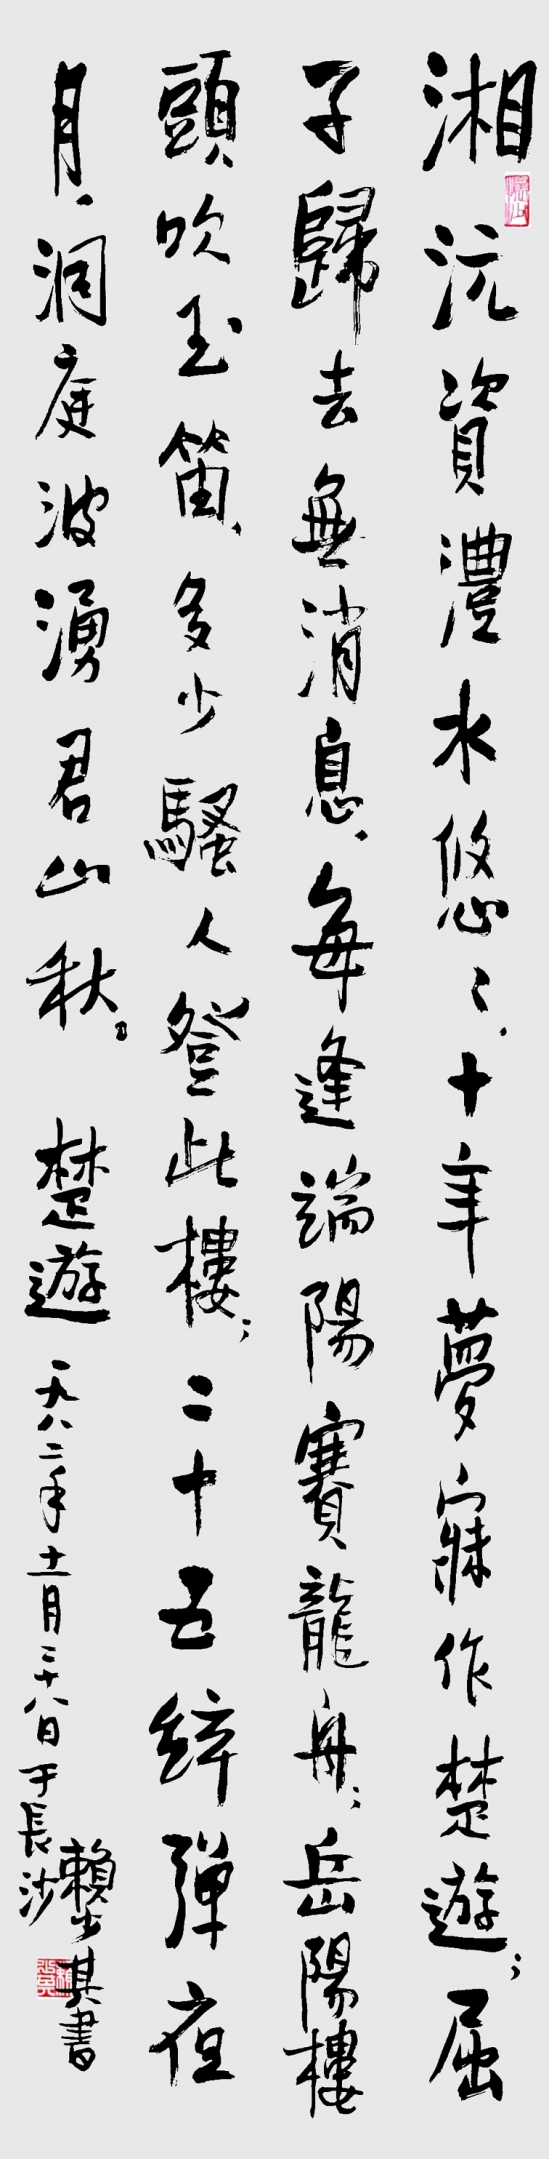 湘沅資澧水悠々、十年夢寐作楚遊；屈
子歸去無消息、每逢端陽賽龍舟；岳陽樓
頭吹玉笛、多少騷人登此樓；二十五絃彈夜
月、洞庭波湧君山秋。 楚遊 一九八二年十一月二十八日于長沙
賴少其書